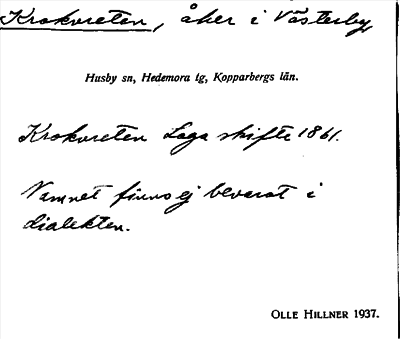 Krokvreten, åker i Västerby,
Husby sn, Hedemora tg, Kopparbergs län.
Krokvreten Laga skifte 1861.
Namnet finns ej bevarat i
dialekten.
OLLE HILLNER 1937.